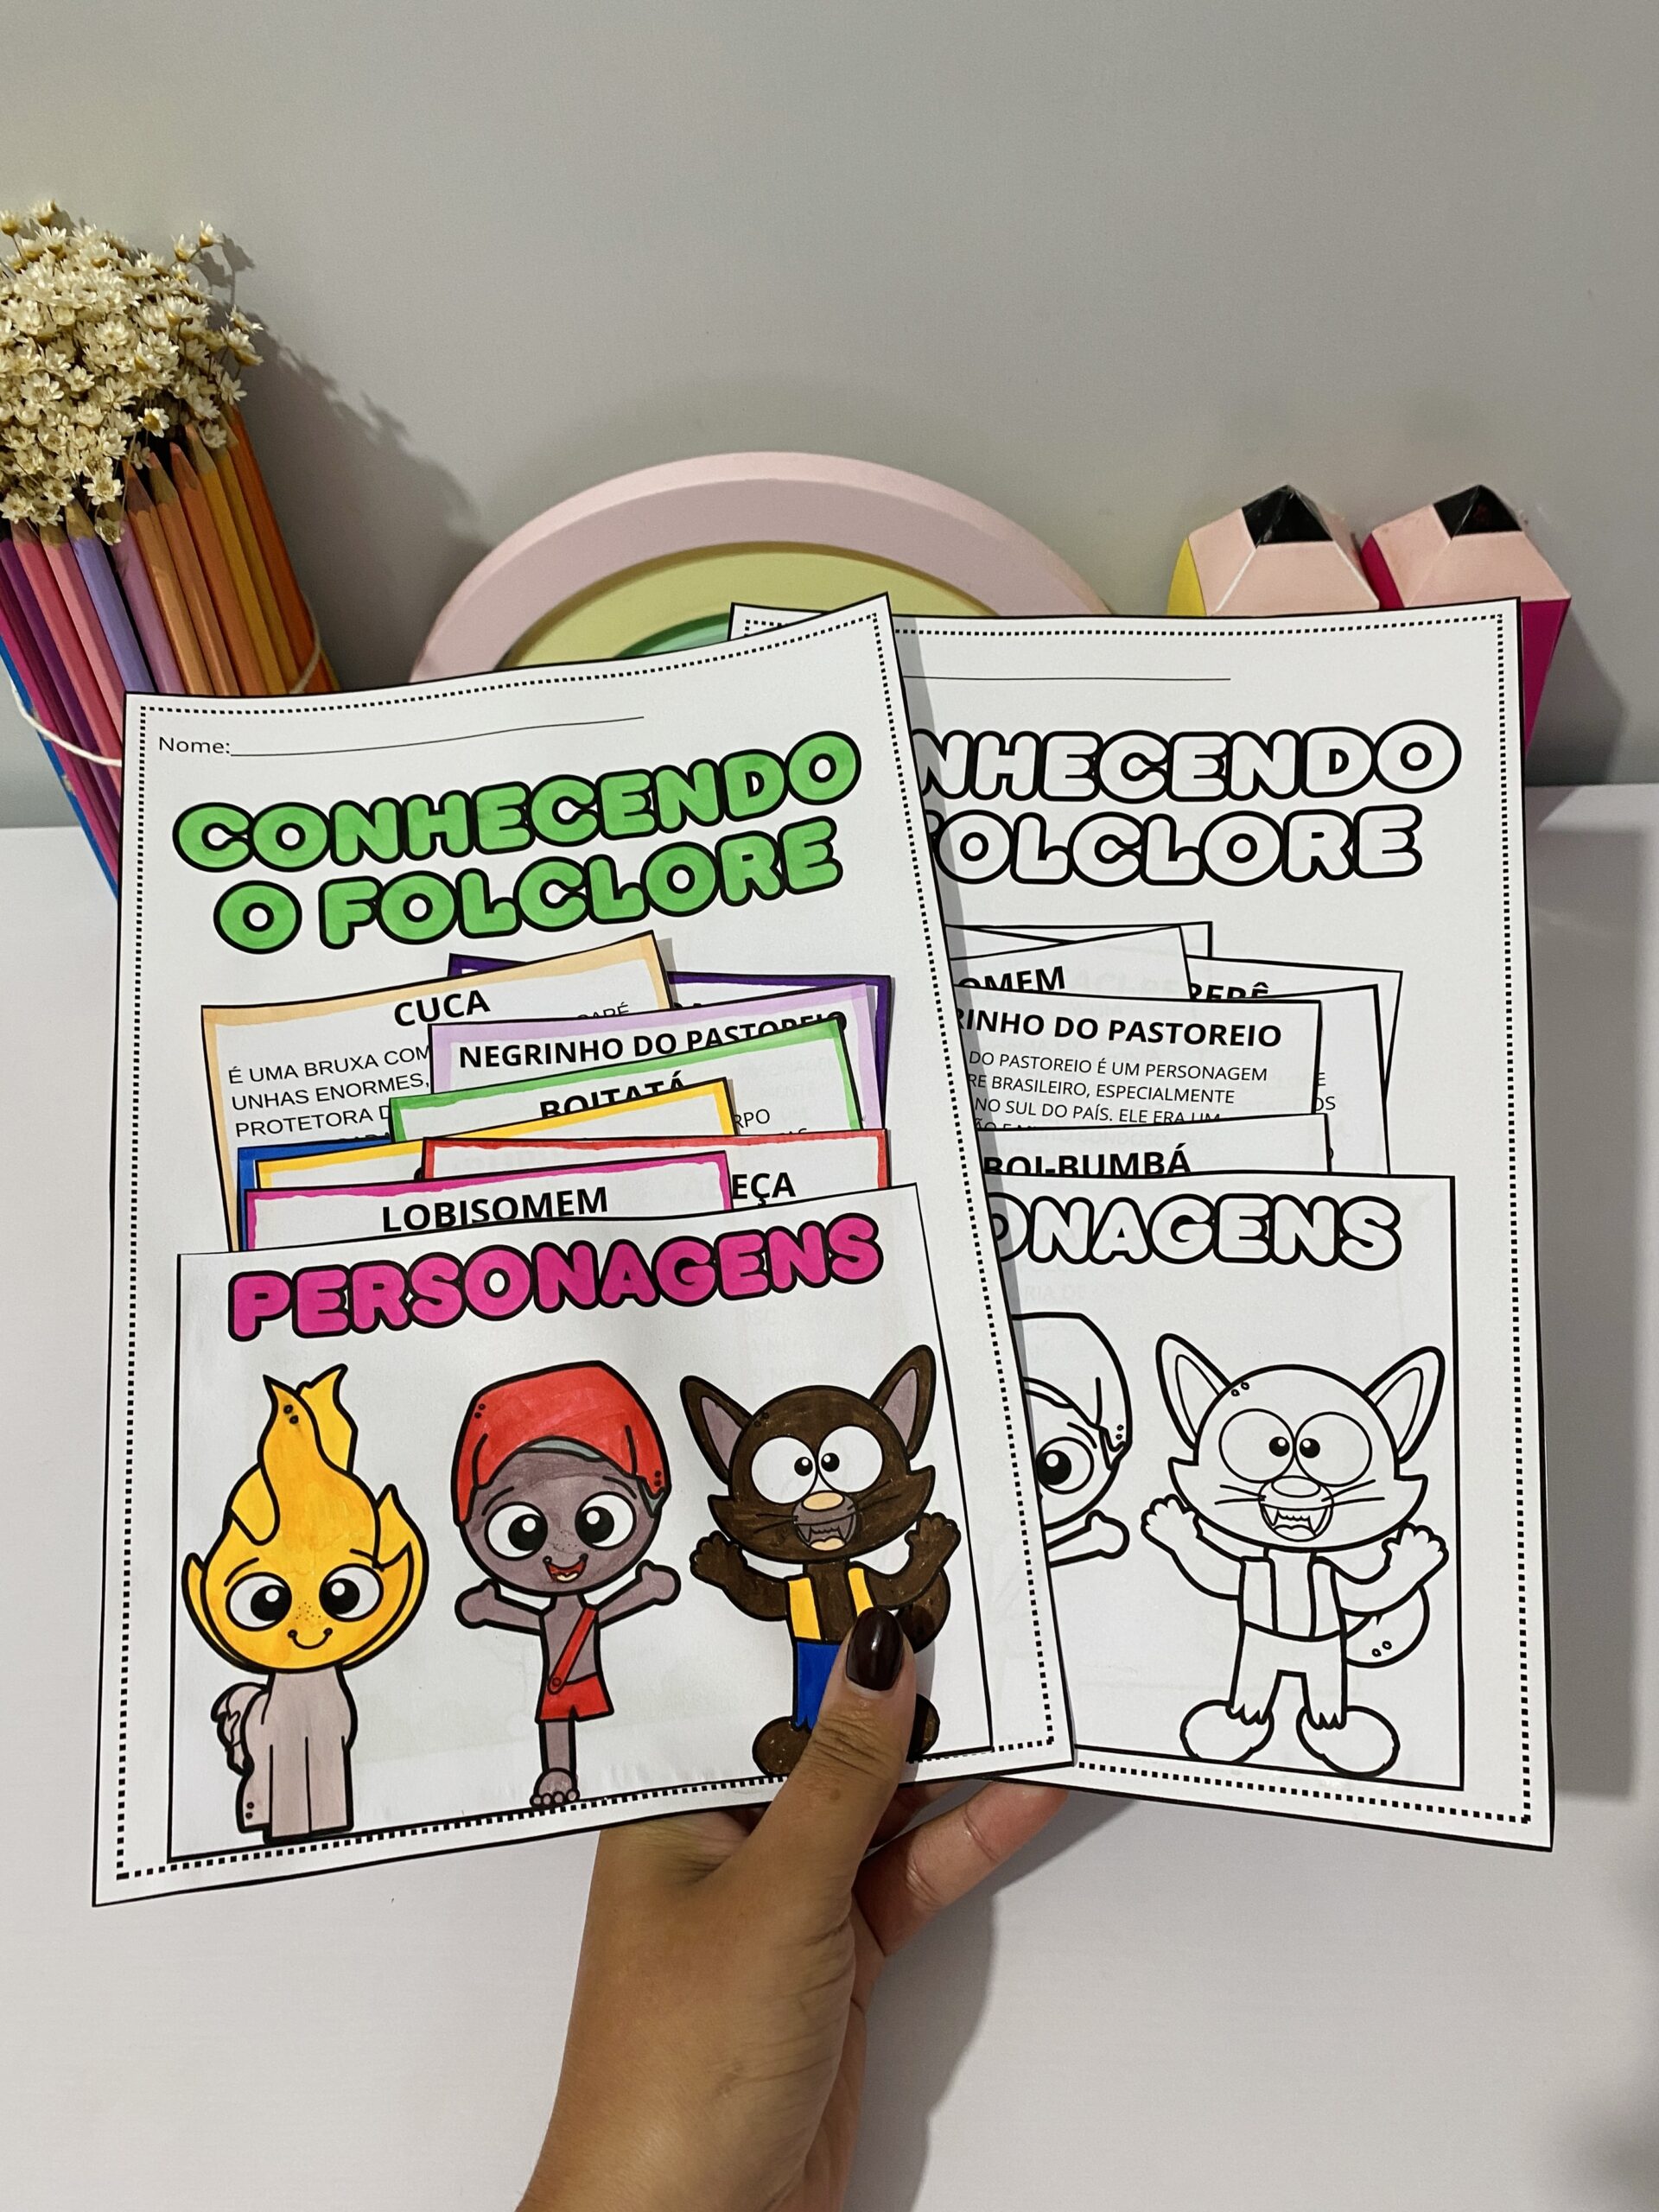 Nome:
CONHECENDO
O FOLCLORE
CUCA
É UMA BRUXA COM
UNHAS ENORMES,
PROTETORA
NEGRINHO DO PASTOREIO
BOITATÁ
LOBISOMEM
PERSONAGENS
NHECENDO
OLCLORE
OMEM
RERÊ
RINHO DO PASTOREIO
DO PASTOREIO É UM PERSONAGEM
RE BRASILEIRO, ESPECIALMENTE
NO SUL DO PAÍS. ELE ERA UM
BOI-BUMBÁ
ONAGENS